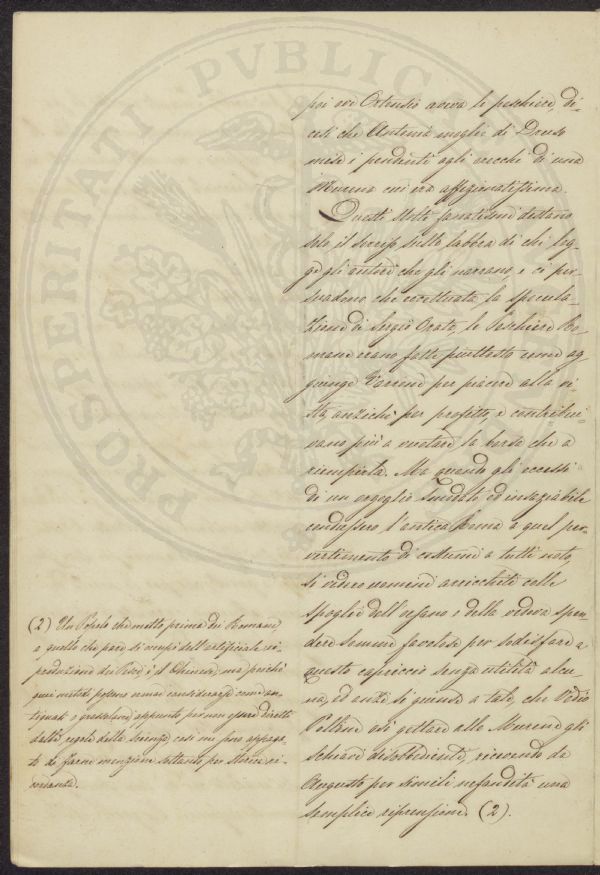 PROSPERITATI PVBLICAE
poi ove Ortensio aveva le peschiere, di-
cesi che Antonia moglie di Druso
mise i pendenti agli orecchi di una
Murena cui era affezionatissima.
Questi stolti fanatismi destano
solo il sorriso sulle labbra di chi leg-
ge gli autori che gli narrano, e ci per-
suadono che eccettuata, la specula-
zione di Sergio Orata, le Peschiere Ro-
mane erano fatte piuttosto come ag-
giunge Varrone per piacere alla vi-
sta, anzichè per profitto, e contribui-
vano più a vuotare la borsa che a
riempierla. Ma quando gli eccessi
di un orgoglio smodato ed insaziabile
condussero l'antica Roma a quel per-
vertimento di costumi a tutti noto,
si videro uomini arricchiti colle
spoglie dell'orfano e della vedova spen-
dere somme favolose per sodisfare a
questo capriccio senza utilità alcu-
na, ed anzi si giunse a tale, che Vedio
Pollione osò gettare alle Murene gli
schiavi disobbedienti, ricevendo da
Augusto per simili nefandità una
semplice riprensione (2).
(2) Un Popolo che molto prima dei Romani,
a quello che pare si occupò dell'artificiale ri-
produzione dei Pesci è il Chinese, ma poichè
quei metodi possono ormai considerarsi come an-
tiquati e grossolani appunto per non essere diretti
dalle regole della Scienza così mi sono appaga-
to di farne menzione soltanto per Storica ri-
cordanza.